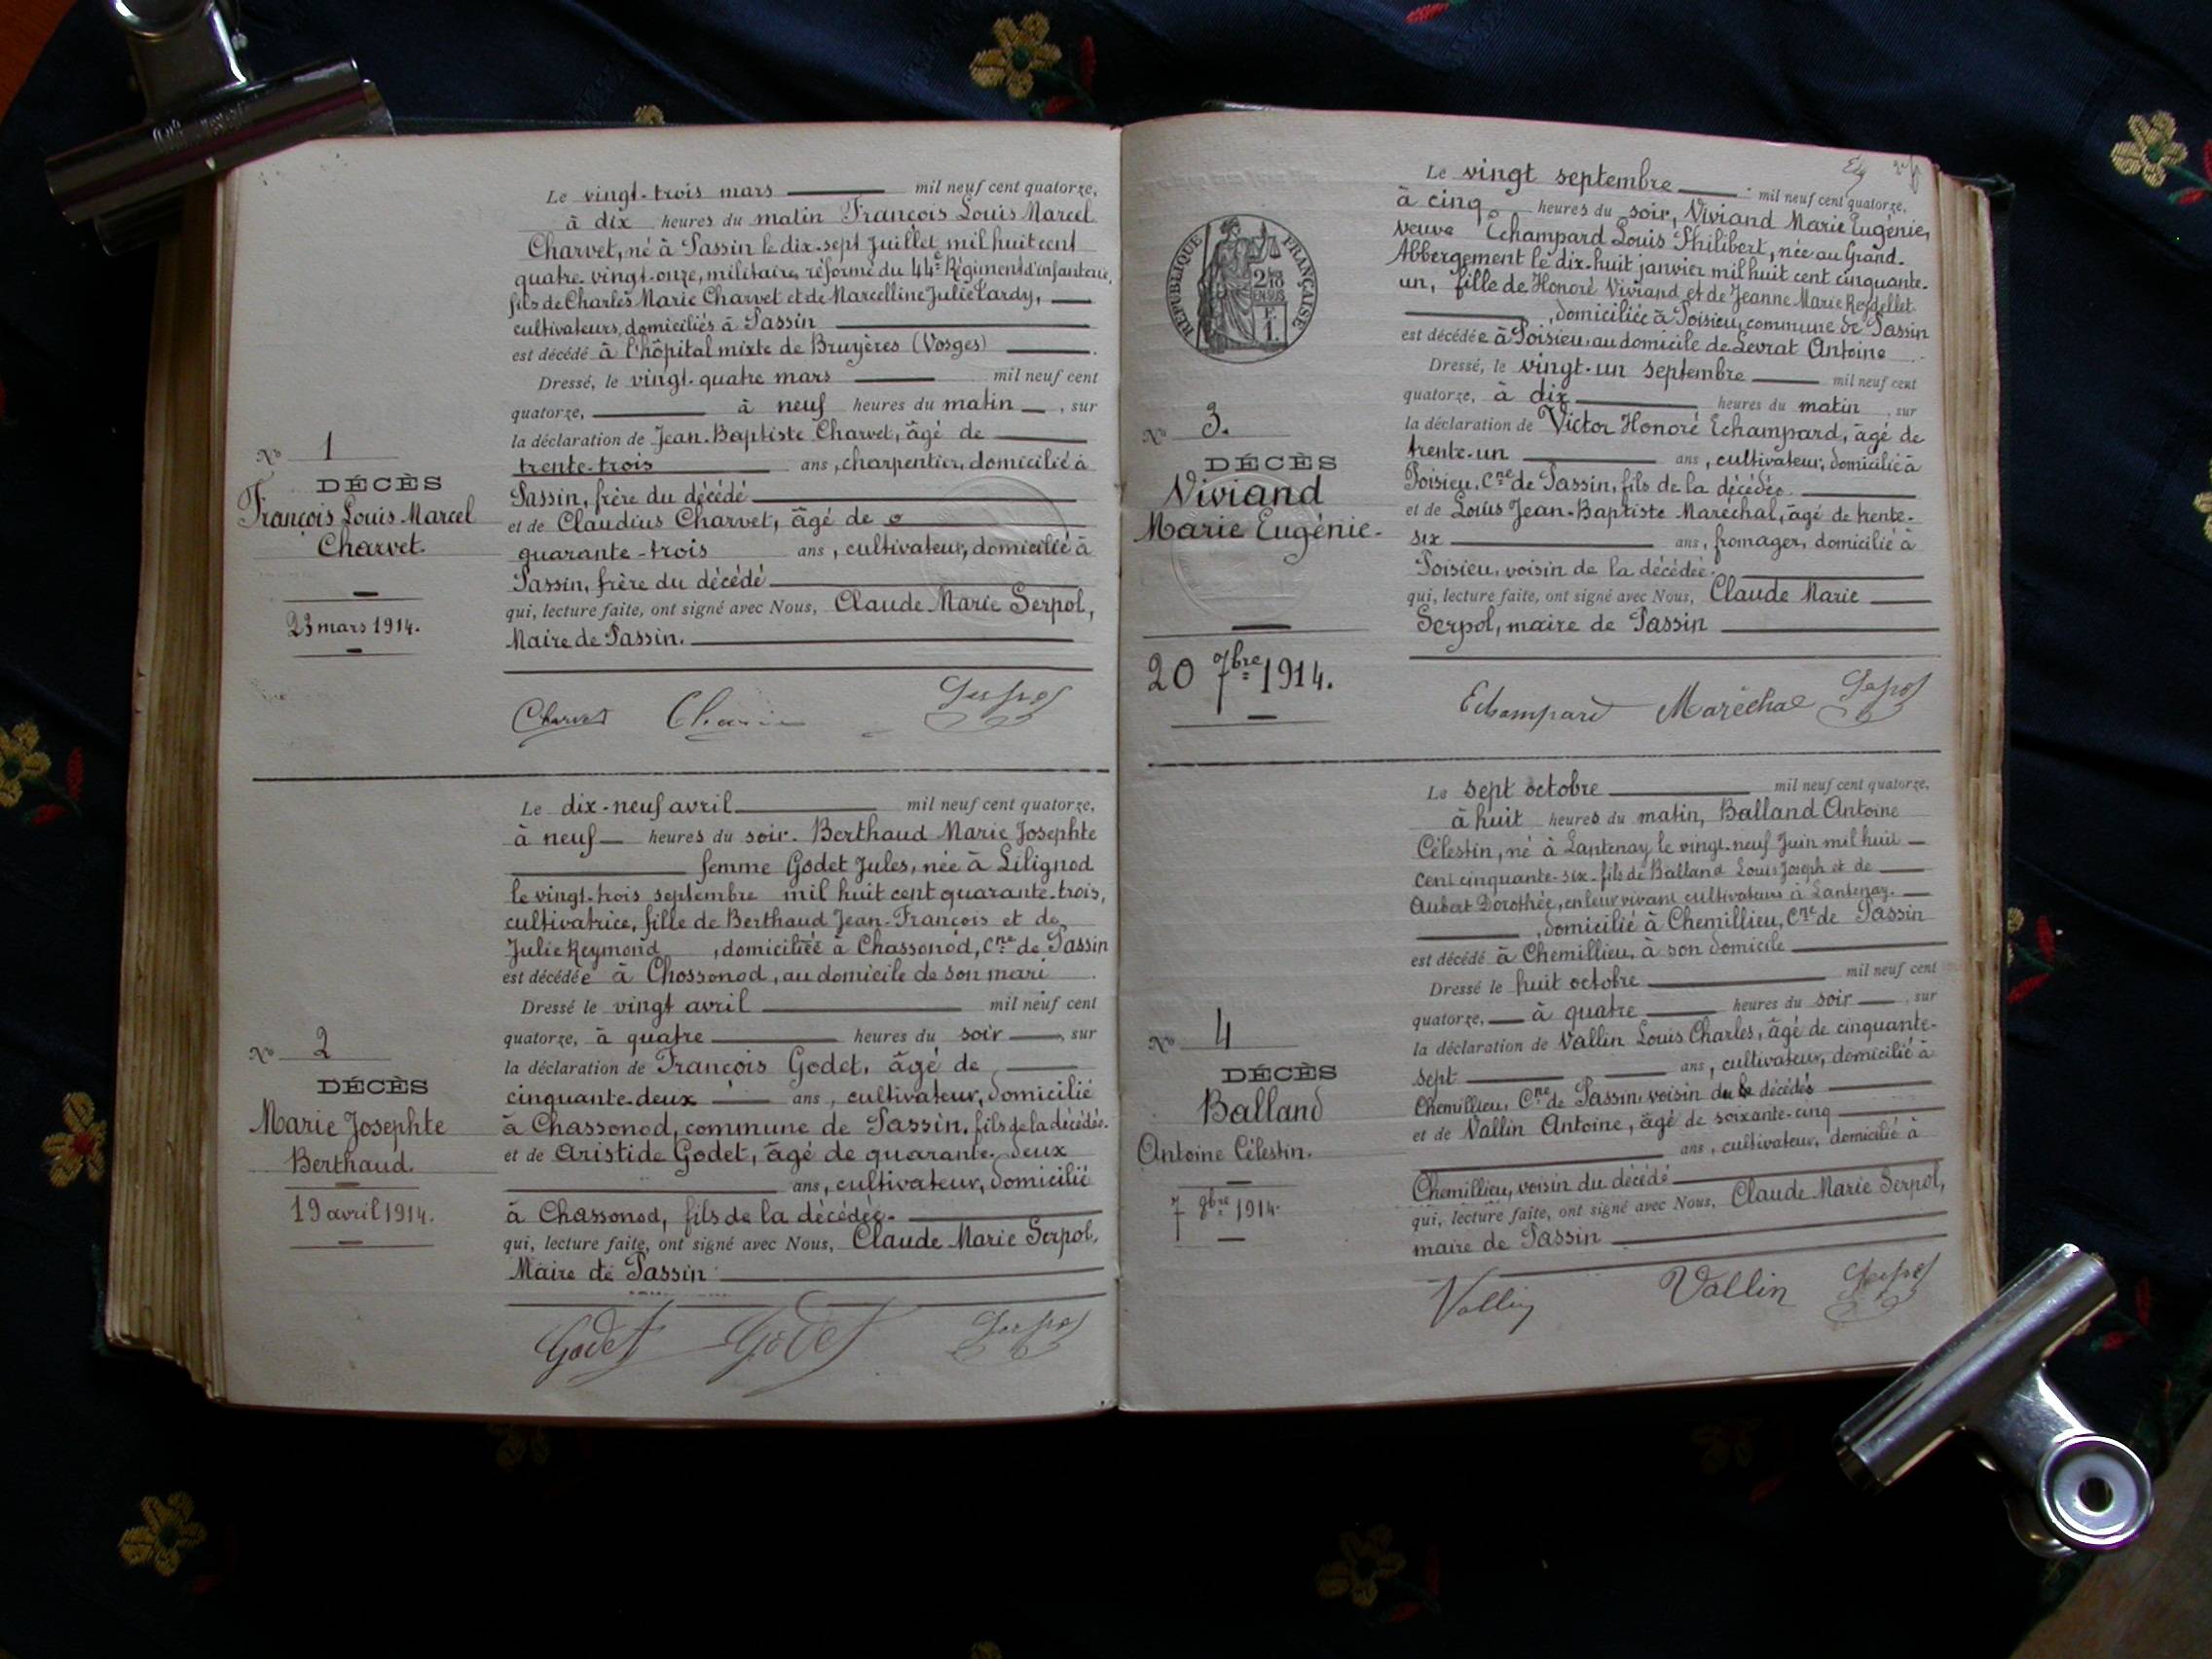 Le vingt-trois mars mil neuf cent quatorze,
à dix heures du matin François Louis Marcel
Charvet, né à Passin le dix-sept Juillet mil huit cent
quatre-vingt-onze, militaire réformé du 44e Régiment d'infanterie,
fils de Charles Marie Charvet et de Marcelline Julie Lardy,
cultivateurs, domiciliés à Passin
est décédé à l'hôpital mixte de Bruyères (Vosges)
Dressé, le vingt-quatre mars mil neuf cent
quatorze, à neuf heures du matin, sur
la déclaration de Jean-Baptiste Charvet, âgé de
trente-trois ans, charpentier, domicilié à
Passin, frère du décédé
et de Claudius Charvet, âgé de
quarante-trois ans, cultivateur, domicilié à
Passin, frère du décédé
qui, lecture faite, ont signé avec Nous, Claude Marie Serpol,
Maire de Passin.
No 1
DÉCÈS
François Louis Marcel
Charvet.
23 mars 1914.
Charvet Serpol
Le dix-neuf avril mil neuf cent quatorze,
à neuf heures du soir. Berthaud Marie Josephte
femme Godet Jules, née à Lilignod
le vingt-trois septembre mil huit cent quarante-trois,
cultivatrice, fille de Berthaud Jean-François et de
Julie Reymond, domiciliée à Chassonod, Cne de Passin
est décédée à Chossonod, au domicile de son mari.
Dressé le vingt avril mil neuf cent
quatorze, à quatre heures du soir, sur
la déclaration de François Godet, âgé de
cinquante-deux ans, cultivateur, domicilié
à Chassonod, commune de Passin, fils de la décédée.
et de Aristide Godet, âgé de quarante-deux
ans, cultivateur, domicilié
à Chassonod, fils de la décédée.
qui, lecture faite, ont signé avec Nous, Claude Marie Serpol,
Maire de Passin
No 2
DÉCÈS
Marie Josephte
Berthaud.
19 avril 1914.
Godet Godet Serpol
Le vingt septembre mil neuf cent quatorze,
à cinq heures du soir, Viviand Marie Eugénie,
veuve Echampard Louis Philibert, née au Grand-
Abbergement le dix-huit janvier mil huit cent cinquante-
un, fille de Honoré Viviand et de Jeanne Marie Reydellet
, domiciliée à Poisieu, commune de Passin
est décédée à Poisieu, au domicile de Levrat Antoine
Dressé, le vingt-un septembre mil neuf cent
quatorze, à dix heures du matin, sur
la déclaration de Victor Honoré Echampard, âgé de
trente-un ans, cultivateur, domicilié à
Poisieu, Cne de Passin, fils de la décédée.
et de Louis Jean-Baptiste Maréchal, âgé de trente-
six ans, fromager, domicilié à
Poisieu, voisin de la décédée.
qui, lecture faite, ont signé avec Nous, Claude Marie
Serpol, maire de Passin
RÉPUBLIQUE FRANÇAISE
No 3.
DÉCÈS
Viviand
Marie Eugénie.
20 7bre 1914.
Echampard Maréchal Serpol
Le sept octobre mil neuf cent quatorze,
à huit heures du matin, Balland Antoine
Célestin, né à Lantenay le vingt-neuf Juin mil huit
cent cinquante-six, fils de Balland Louis Joseph et de
Aubert Dorothée, en leur vivant cultivateurs à Lantenay.
, domicilié à Chemillieu, Cne de Passin
est décédé à Chemillieu, à son domicile
Dressé le huit octobre mil neuf cent
quatorze, à quatre heures du soir, sur
la déclaration de Vallin Louis Charles, âgé de cinquante-
sept ans, cultivateur, domicilié à
Chemillieu, Cne de Passin, voisin du décédé
et de Vallin Antoine, âgé de soixante-cinq
ans, cultivateur, domicilié à
Chemillieu, voisin du décédé
qui, lecture faite, ont signé avec Nous, Claude Marie Serpol,
maire de Passin
No 4
DÉCÈS
Balland
Antoine Célestin.
7 8bre 1914.
Vallin Vallin Serpol